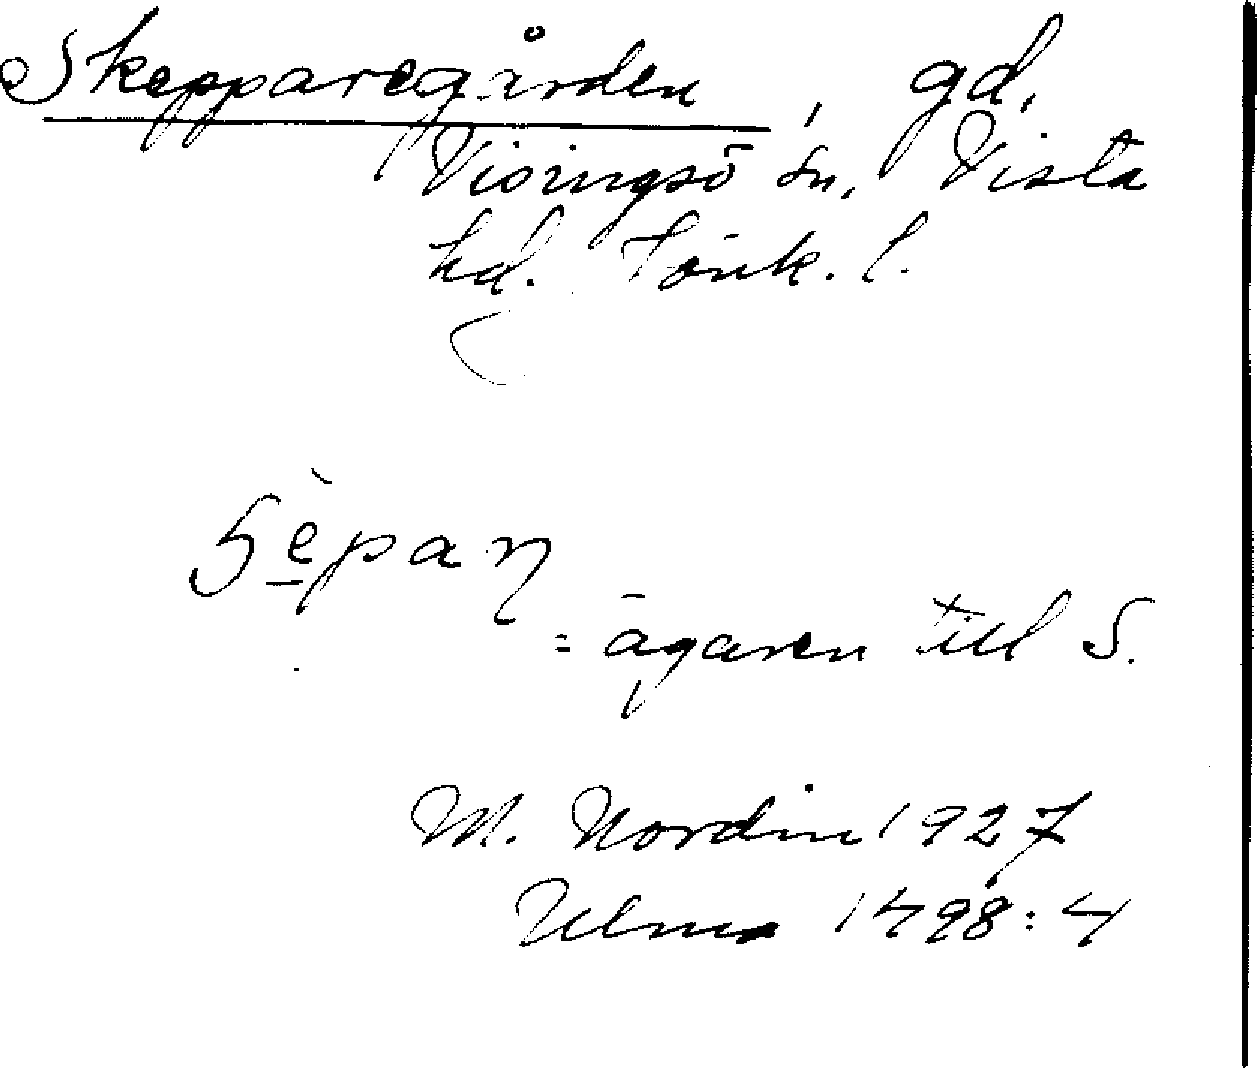 Skepparegården, gd,
Visingsö sn, Vista
hd. Jönk. l.
Sèpan
= ägaren till S.
M. Nordin 1927
Ulma 1498:4